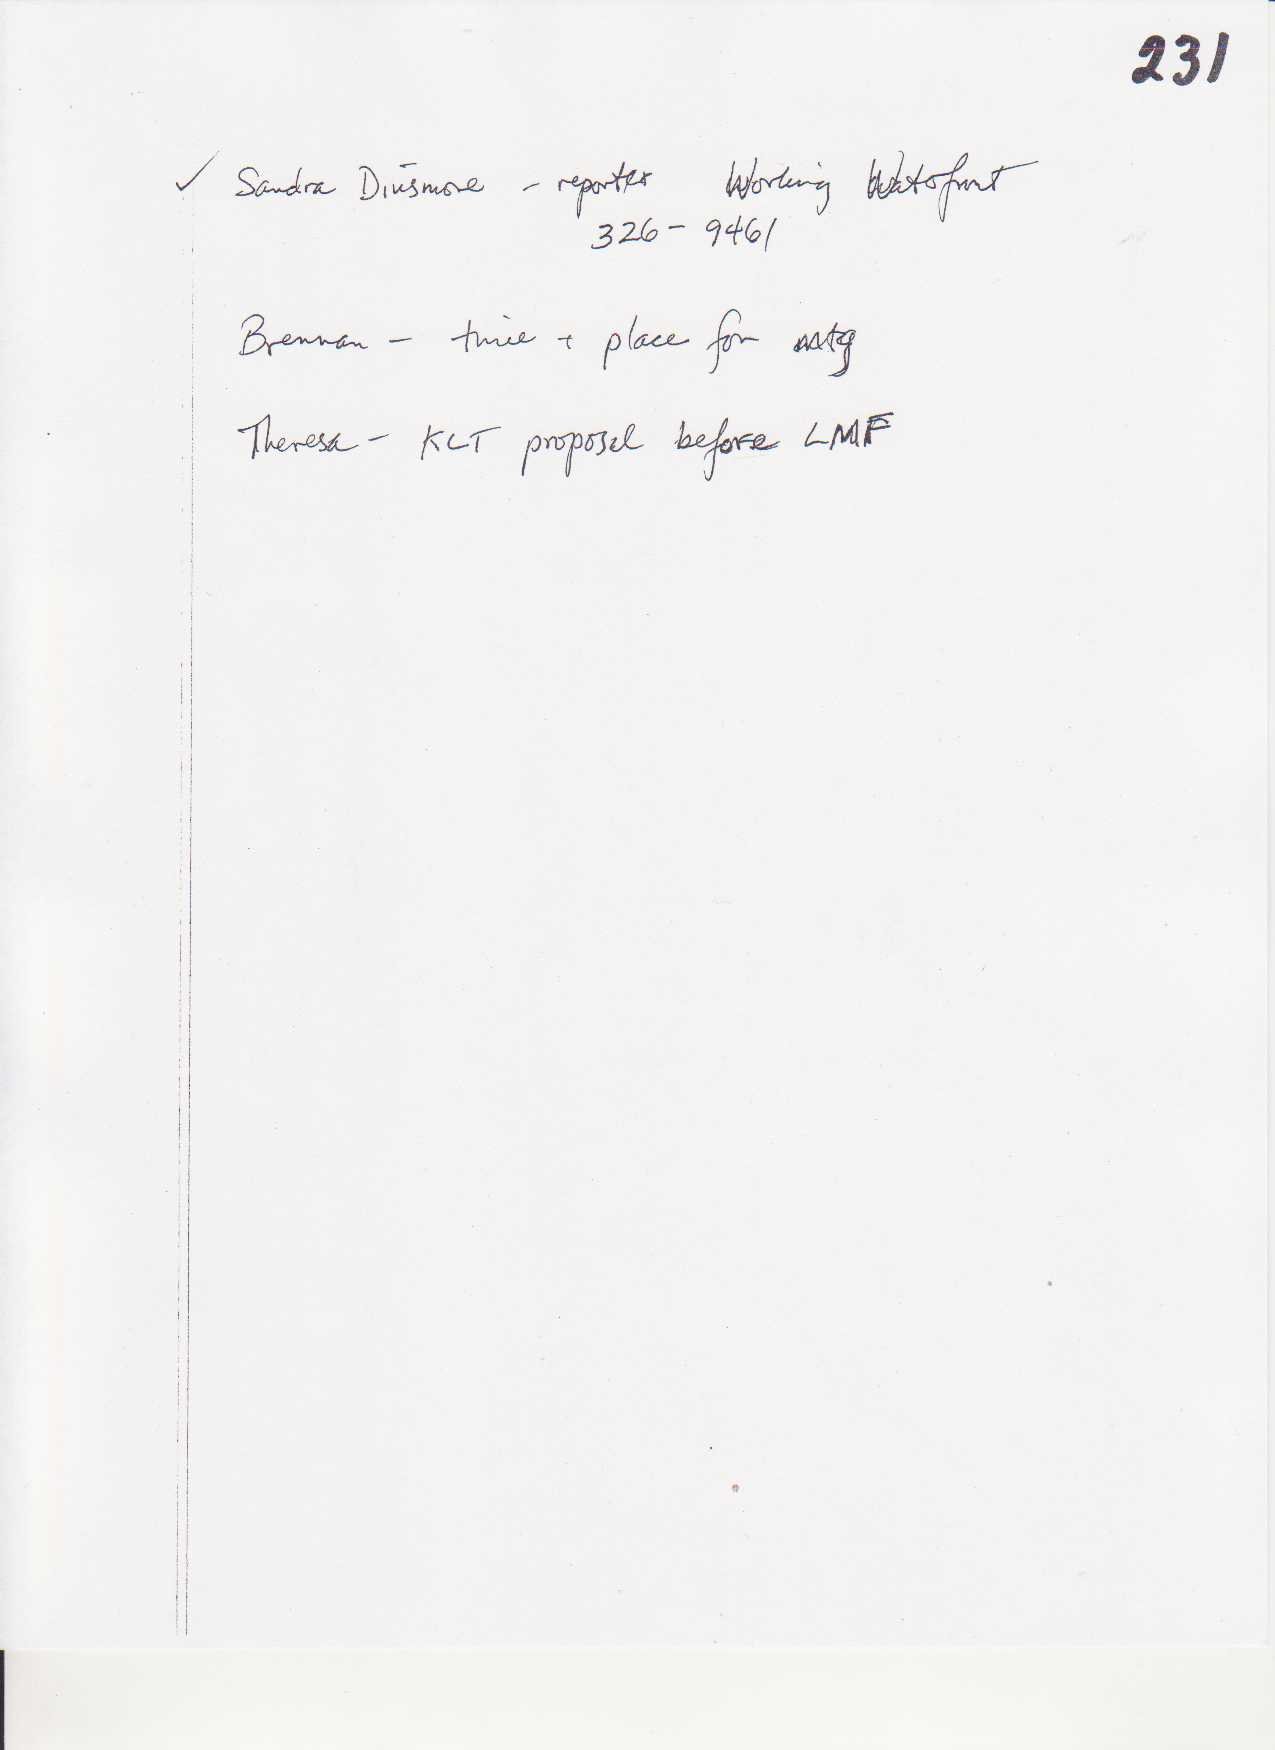 231
✓ Sandra Dinsmore - reporter Working Waterfront
326-9461
Brennan - time + place for mtg
Theresa - KLT proposal before LMF